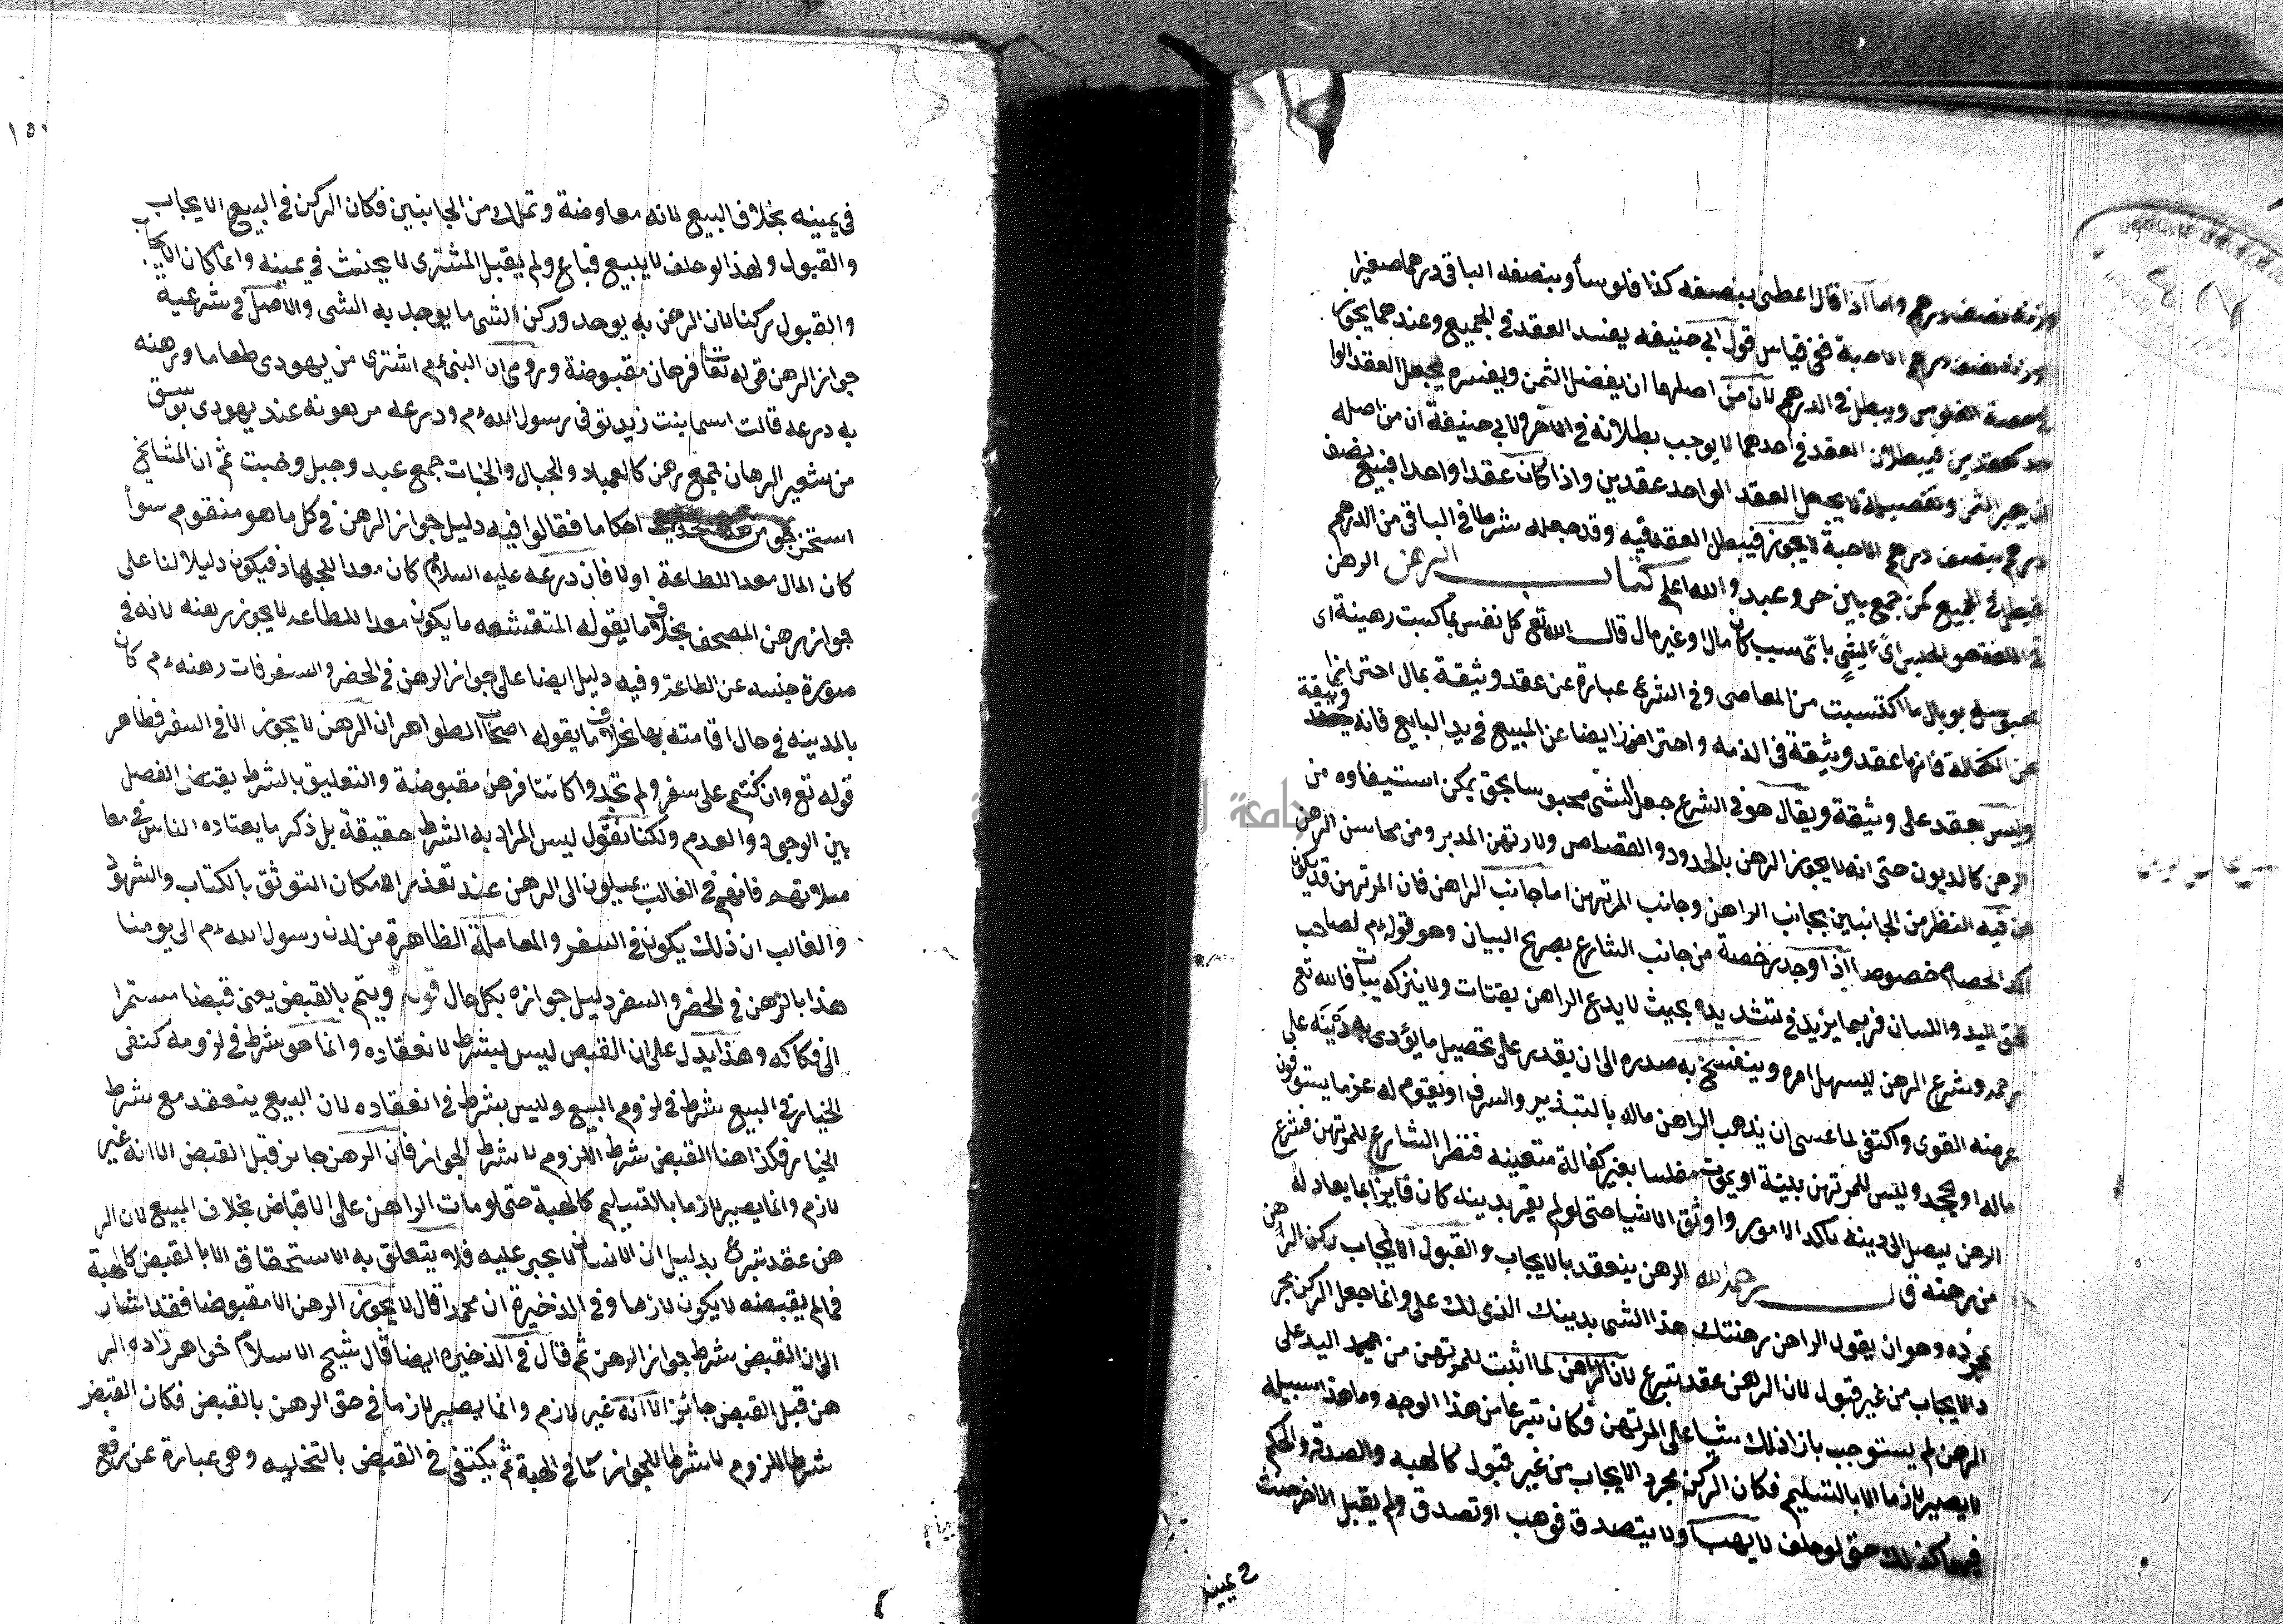 وزنه نصف درهم واما اذا قال اعطني بنصفه كذا فلوسا وبنصفه الباقي درهما صغيرا
وزنه نصف درهم الا حبة ففي قياس قول ابي حنيفه يفسد العقد في الجميع وعندهما يجوز
في حصة الفلوس ويبطل في الدرهم لان من اصلهما ان يفصل الثمن ويفسره يجعل العقد الوا
حد كعقدين فبطلان العقد في احدهما لا يوجب بطلانه في الآخر ولابي حنيفة ان من اصله
ان الثمن وتفصيله لا يجعل العقد الواحد عقدين واذا كان عقدا واحدا فبيع نصف
درهم بنصف درهم الا حبة لا يجوز فيبطل العقد فيه وقد جعله شرطا في الباقي من الدرهم
فيبطل في الجميع كمن جمع بين حر وعبد والله اعلم كتاب الرهن الرهن
في اللغة هو الحبس اي لشيء باي سبب كان مالا او غير مال قال الله تع كل نفس بما كسبت رهينة اي
محبوس بوبال ما اكتسبت من المعاصي وفي الشرع عبارة عن عقد وثيقة بمال احترازا
عن الكفالة فانها عقد وثيقة في الذمه واحترازا ايضا عن المبيع في يد البايع فانه وثيقة
وليس بعقد على وثيقة ويقال هو في الشرع جعل الشي محبوسا بحق يمكن استيفاوه من
الرهن كالديون حتى انه لا يجوز الرهن بالحدود والقصاص ولا رهن المدبر ومن محاسن الرهن
ان فيه النظر من الجانبين بجانب الراهن وجانب المرتهن اما جانب الراهن فان المرتهن قد يكون
الد الخصام خصوصا اذا وجد رخصة من جانب الشارع بصريح البيان وهو قوله ءم لصاحب
الحق اليد واللسان فربما يزيد في تشديده بحيث لا يدع الراهن يقتات ولا يتركه يبات فالله تع
رحمه وشرع الرهن ليسهل امره وينفسح به صدره الى ان يقدر على تحصيل ما يؤدي به دينه على
عرضه القوى واكتفى لما عسى ان يذهب الراهن ماله بالتبذير والسرف او يقوم له غرما يستوفون
ماله او يجحد وليس للمرتهن بينة او يموت مفلسا بغير كفالة متعينه فنظر الشارع للمرتهن فشرع
الرهن ليصل الى دينه باكد الامور واوثق الاشيا حتى لو لم يقر بدينه كان فايزا بما يعادله
من رهنه قال رحمه الله الرهن ينعقد بالايجاب والقبول الايجاب ركن الراهن
بمجرده وهو ان يقول الراهن رهنتك هذا الشي بدينك الذي لك علي وانما جعل الركن مجر
د الايجاب من غير قبول لان الرهن عقد تبرع لان الراهن لما اثبت للمرتهن من اليد على
الرهن لم يستوجب بازا ذلك شيا على المرتهن فكان تبرعا من هذا الوجه وما هذا سبيله
لا يصير لازما الا بالتسليم فكان الركن مجرد الايجاب من غير قبول كالهبه والصدقه والحكم
فيهما كذلك حتى لو حلف لا يهب او لا يتصدق فوهب او تصدق ولم يقبل الاخر حنث
في يمينه
١٥١
في يمينه بخلاف البيع لانه معاوضة وتملك من الجانبين فكان الركن في البيع الايجاب
والقبول ولهذا لو حلف لا يبيع فباع ولم يقبل المشتري لا يحنث في يمينه وانما كان الايجاب
والقبول ركنا لان الرهن به يوجد وركن الشي ما يوجد به الشي والاصل في شرعية
جواز الرهن قوله تعا فرهان مقبوضة وروى ان النبي ءم اشترى من يهودي طعاما ورهنه
به درعه قالت اسما بنت زيد توفي رسول الله ءم ودرعه مرهونه عند يهودي بوسق
من شعير الرهان جمع رهن كالعباد والجبال والخبات جمع عبد وجبل وخبت ثم ان المشايخ
استخرجوا من هذا الحديث احكاما فقالوا فيه دليل جواز الرهن في كل ما هو متقوم سوأ
كان المال معدا للطاعة او لا فان درعه عليه السلام كان معدا للجهاد فيكون دليلا لنا على
جواز رهن المصحف بخلاف ما يقوله المتقشعه ما يكون معدا للطاعه لا يجوز رهنه لانه في
صورة حبسه عن الطاعة وفيه دليل ايضا على جواز الرهن في الحضر والسفر فان رهنه ءم كان
بالمدينه في حال اقامته بها بخلاف ما يقوله اصحاب الظواهر ان الرهن لا يجوز الا في السفر فظاهر
قوله تع وان كنتم على سفر ولم تجدوا كاتبا فرهن مقبوضة والتعليق بالشرط يقتضي الفصل
بين الوجود والعدم ولكنا نقول ليس المراد به الشرط حقيقة بل ذكر ما يعتاده الناس في معا
ملاتهم فانهم في الغالب يميلون الى الرهن عند تعذر امكان التوثق بالكتاب والشهود
والغالب ان ذلك يكون في السفر والمعاملة الظاهرة من لدن رسول الله ءم الى يومنا
هذا بالرهن في الحضر والسفر دليل جوازه بكل حال قوله ويتم بالقبض يعني قبضا مستمرا
الى فكاكه وهذا يدل على ان القبض ليس بشرط لانعقاده وانما هو شرط في لزومه كنفي
الخيار في البيع شرط في لزوم البيع وليس بشرط في انعقاده لان البيع ينعقد مع شرط
الخيار فكذا هنا القبض شرط اللزوم لا شرط الجواز فان الرهن جايز قبل القبض الا انه غير
لازم وانما يصير لازما بالتسليم كالهبة حتى لو مات الراهن على الاقباض بخلاف البيع لان الر
هن عقد تبرع بدليل ان الانسان لا يجبر عليه فلا يتعلق به الاستحقاق الا بالقبض كالهبة
فما لم يقبضه لا يكون لازما وفي الذخيرة ان محمدا قال لا يجوز الرهن الا مقبوضا فقد اشار
الى ان القبض شرط جواز الرهن ثم قال في الذخيره ايضا قال شيخ الاسلام خواهر زاده الر
هن قبل القبض جائز الا انه غير لازم وانما يصير لازما في حق الرهن بالقبض فكان القبض
شرط اللزوم لا شرط الجواز كما في الهبة ثم يكتفي في القبض بالتخليه وهي عبارة عن رفع